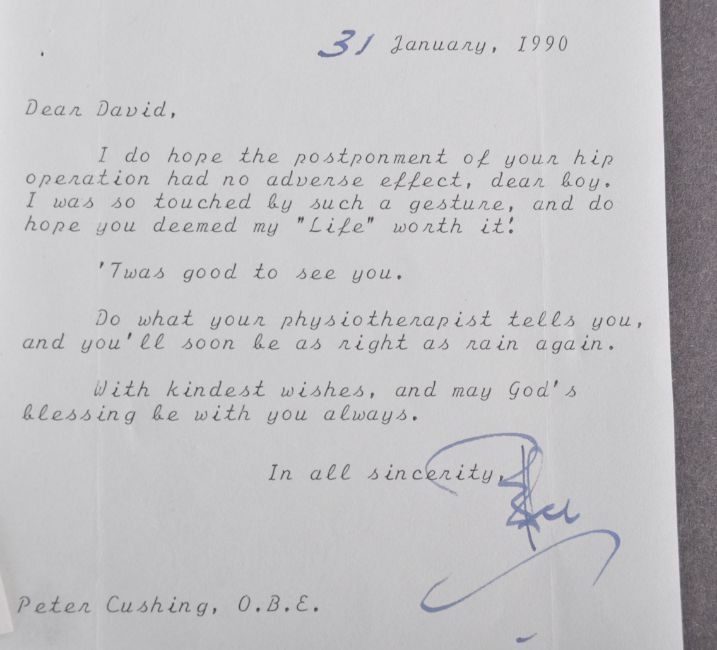 31 January, 1990
Dear David,
I do hope the postponment of your hip
operation had no adverse effect, dear boy.
I was so touched by such a gesture, and do
hope you deemed my "Life" worth it!
'Twas good to see you.
Do what your physiotherapist tells you,
and you'll soon be as right as rain again.
With kindest wishes, and may God's
blessing be with you always.
In all sincerity,
Peter Cushing, O.B.E.